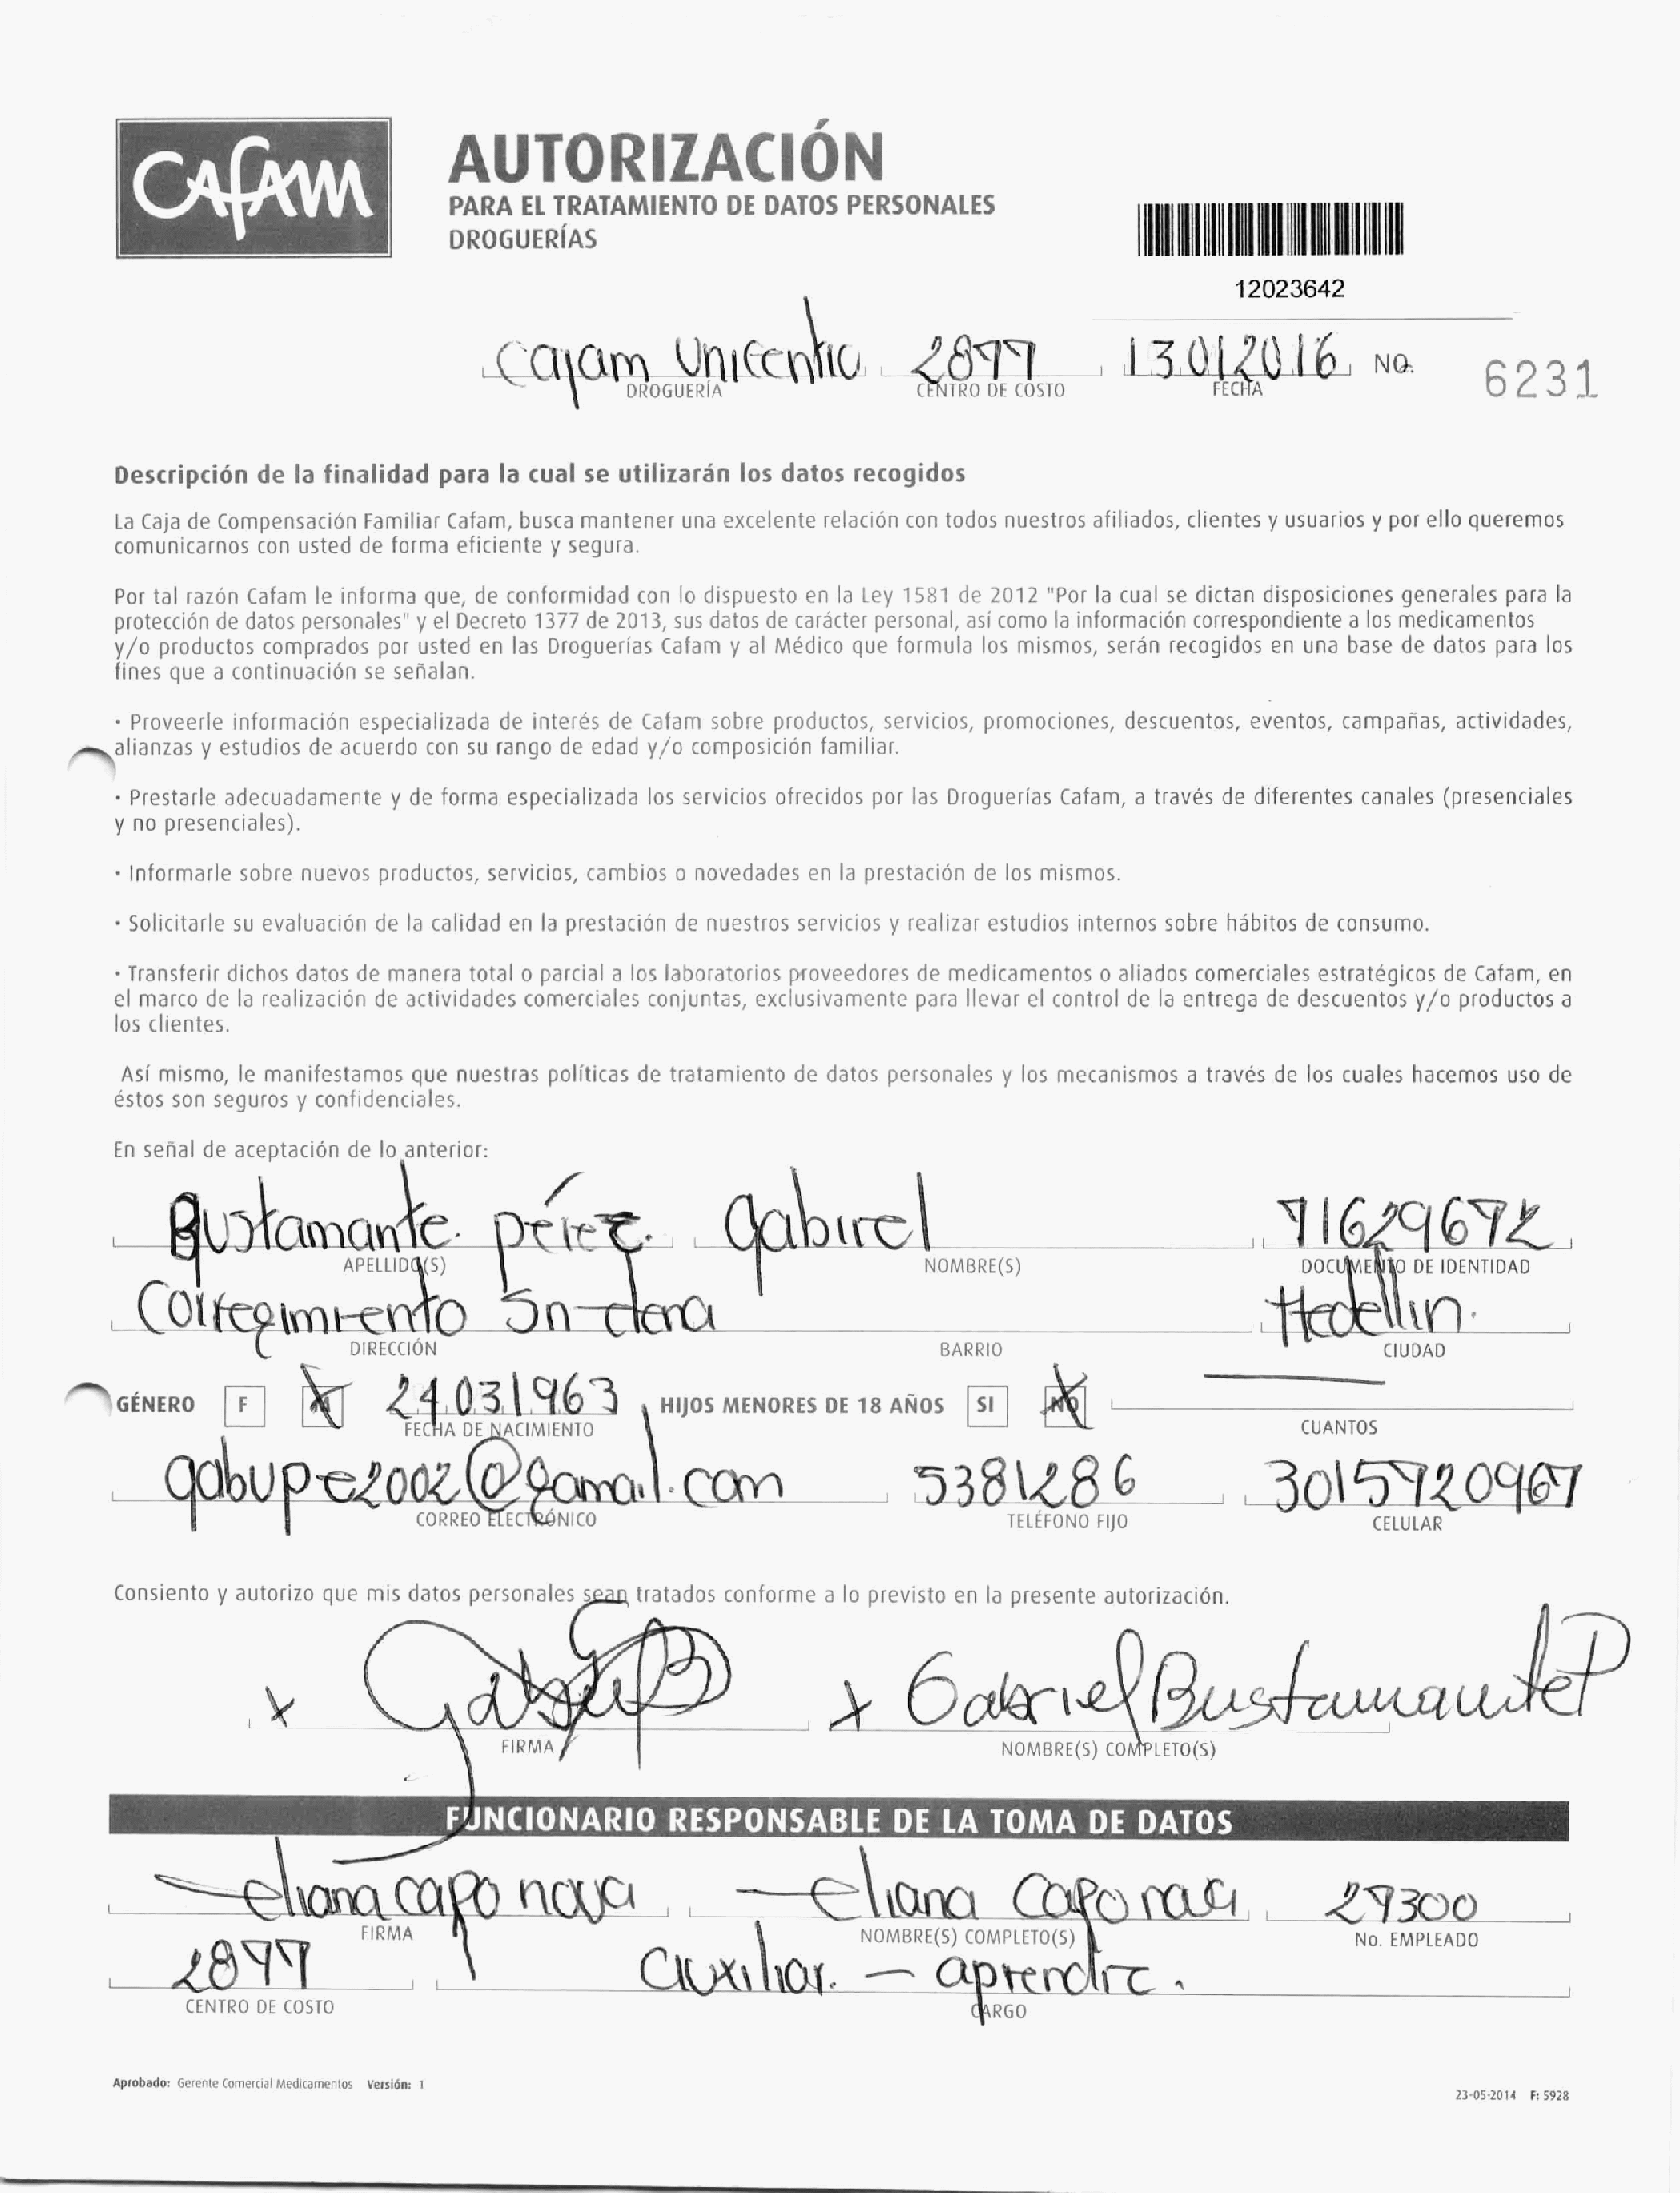 CAFAM
AUTORIZACIÓN
PARA EL TRATAMIENTO DE DATOS PERSONALES
DROGUERÍAS
12023642
Cafam Unicentro 2877 13012016 NO. 6231
DROGUERÍA CENTRO DE COSTO FECHA
Descripción de la finalidad para la cual se utilizarán los datos recogidos
La Caja de Compensación Familiar Cafam, busca mantener una excelente relación con todos nuestros afiliados, clientes y usuarios y por ello queremos
comunicarnos con usted de forma eficiente y segura.
Por tal razón Cafam le informa que, de conformidad con lo dispuesto en la Ley 1581 de 2012 "Por la cual se dictan disposiciones generales para la
protección de datos personales" y el Decreto 1377 de 2013, sus datos de carácter personal, así como la información correspondiente a los medicamentos
y/o productos comprados por usted en las Droguerías Cafam y al Médico que formula los mismos, serán recogidos en una base de datos para los
fines que a continuación se señalan.
· Proveerle información especializada de interés de Cafam sobre productos, servicios, promociones, descuentos, eventos, campañas, actividades,
alianzas y estudios de acuerdo con su rango de edad y/o composición familiar.
· Prestarle adecuadamente y de forma especializada los servicios ofrecidos por las Droguerías Cafam, a través de diferentes canales (presenciales
y no presenciales).
· Informarle sobre nuevos productos, servicios, cambios o novedades en la prestación de los mismos.
· Solicitarle su evaluación de la calidad en la prestación de nuestros servicios y realizar estudios internos sobre hábitos de consumo.
· Transferir dichos datos de manera total o parcial a los laboratorios proveedores de medicamentos o aliados comerciales estratégicos de Cafam, en
el marco de la realización de actividades comerciales conjuntas, exclusivamente para llevar el control de la entrega de descuentos y/o productos a
los clientes.
Así mismo, le manifestamos que nuestras políticas de tratamiento de datos personales y los mecanismos a través de los cuales hacemos uso de
éstos son seguros y confidenciales.
En señal de aceptación de lo anterior:
Bustamante. pérez. gabirel 71629672
APELLIDO(S) NOMBRE(S) DOCUMENTO DE IDENTIDAD
Corregimiento Sn-elena Medellin.
DIRECCIÓN BARRIO CIUDAD
GÉNERO F M 24031963 HIJOS MENORES DE 18 AÑOS SI NO
FECHA DE NACIMIENTO CUANTOS
gabupe2002@gamail.com 5381286 3015720967
CORREO ELECTRÓNICO TELÉFONO FIJO CELULAR
Consiento y autorizo que mis datos personales sean tratados conforme a lo previsto en la presente autorización.
x x Gabriel Bustamante P
FIRMA NOMBRE(S) COMPLETO(S)
FUNCIONARIO RESPONSABLE DE LA TOMA DE DATOS
eliana capo nova eliana 27300
FIRMA NOMBRE(S) COMPLETO(S) No. EMPLEADO
2877 auxiliar. - aprendiz.
CENTRO DE COSTO CARGO
Aprobado: Gerente Comercial Medicamentos Versión: 1
23-05-2014 F: 5928